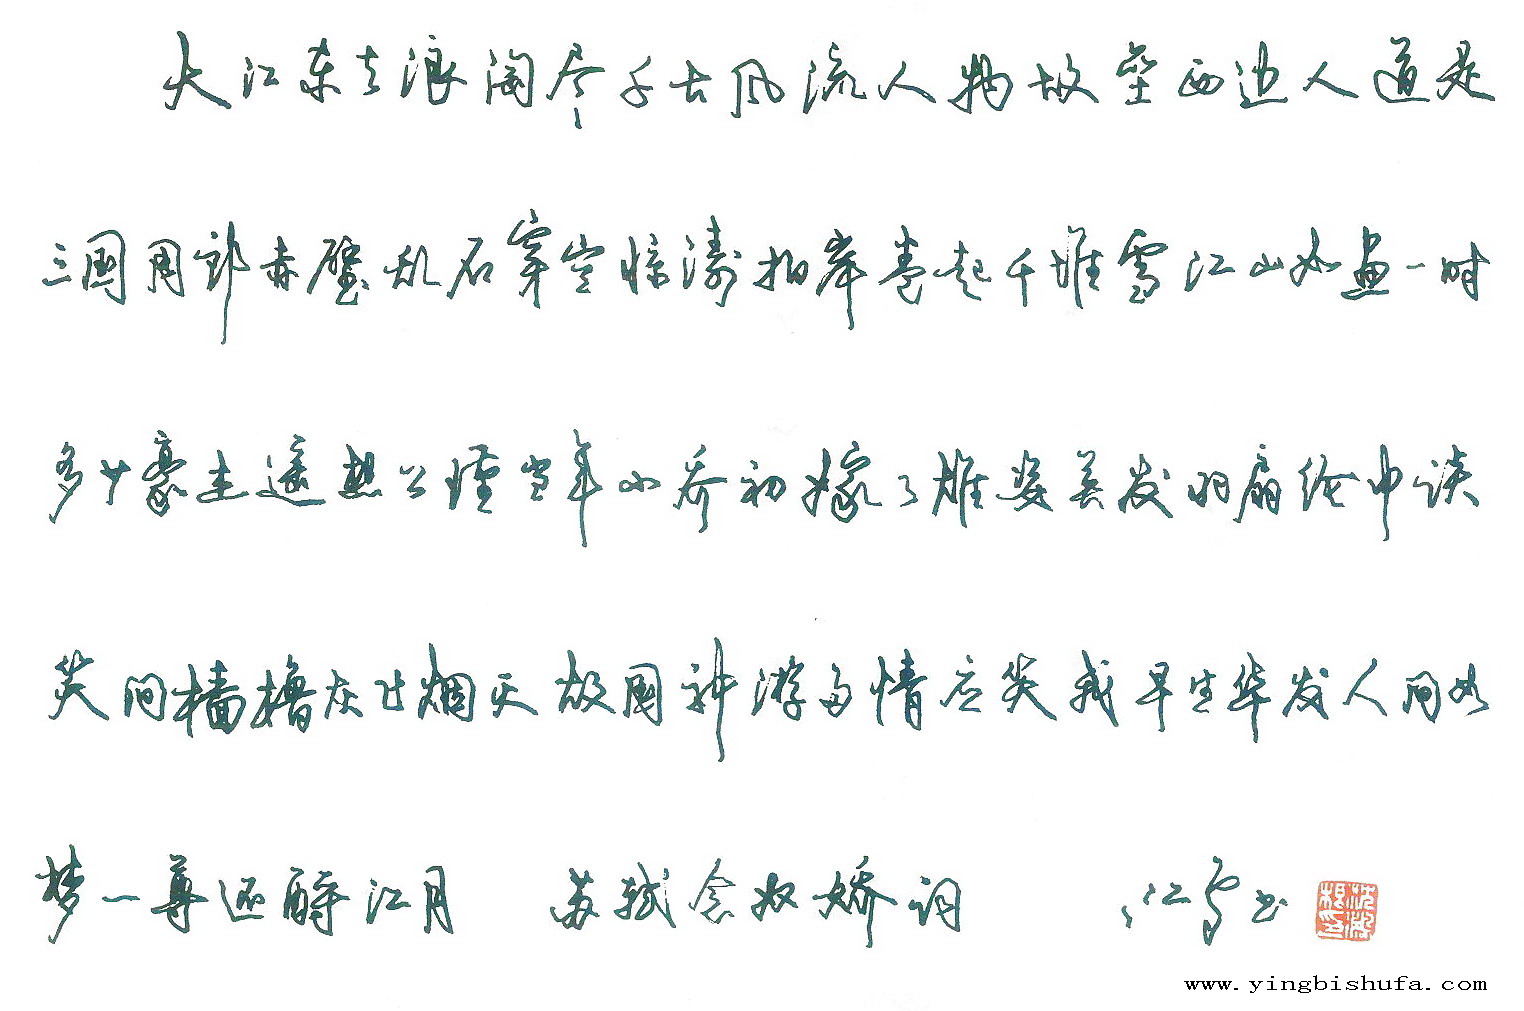 大江东去浪淘尽千古风流人物故垒西边人道是
三國周郎赤壁乱石穿空惊涛拍岸卷起千堆雪江山如画一时
多少豪杰遥想公瑾当年小乔初嫁了雄姿英发羽扇纶巾谈
笑间樯橹灰飞烟灭故國神游多情应笑我早生华发人间如
梦一尊还酹江月 苏轼念奴娇词 鸿书
www.yingbishufa.com